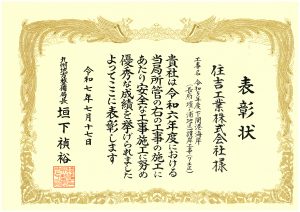 表彰状
住吉工業株式会社 様
工事名 令和5年度下関港海岸
(長府・壇ノ浦地区)護岸工事
貴社は令和六年度における
当局所管の右の工事の施工に
あたり安全な工事施工に努め
優秀な成績を挙げられました
よってここに表彰します
令和七年七月十七日
九州地方整備局長
垣下禎裕